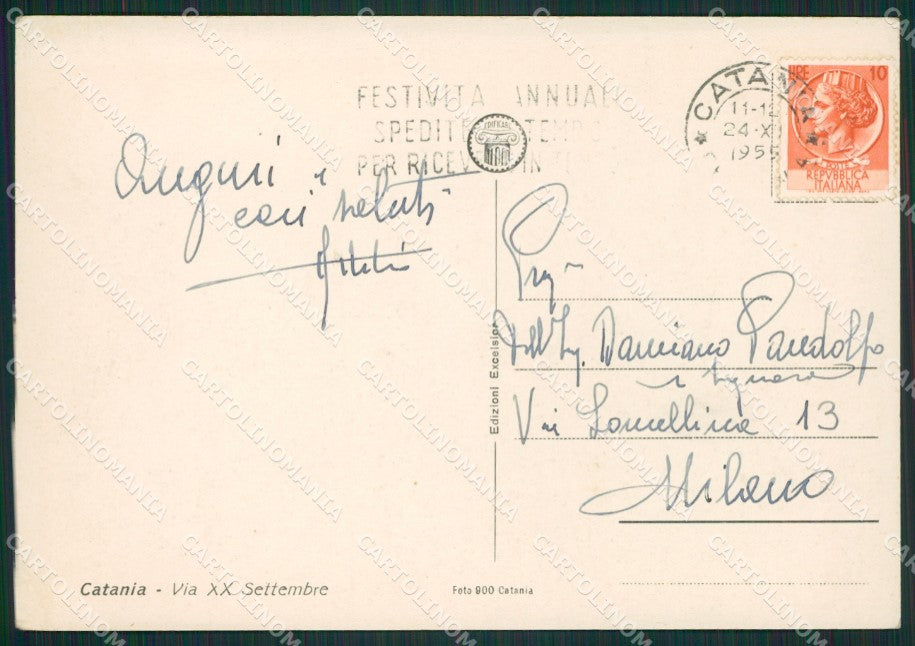 FESTIVITÀ ANNUAL
SPEDITE TEMP
PER RICEV IN TE
CATANIA
11-12
24-XI
1955
LIRE 10
POSTE
REPVBBLICA
ITALIANA
Auguri e
cari saluti
Preg
Dott. Ing. Damiano Pandolfo
e Signora
Via Lomellina 13
Milano
Edizioni Excelsior
Catania - Via XX Settembre
Foto 900 Catania
CARTOLINOMANIA